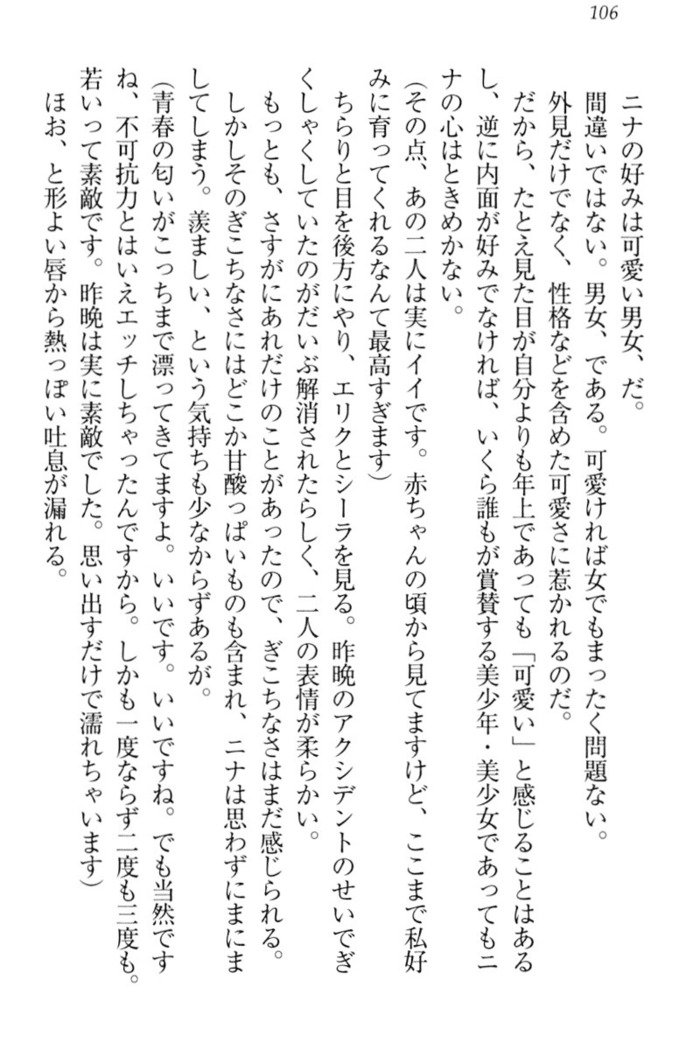 106
ニナの好みは可愛い男女、だ。
間違いではない。男女、である。可愛ければ女でもまったく問題ない。
外見だけでなく、性格などを含めた可愛さに惹かれるのだ。
だから、たとえ見た目が自分よりも年上であっても「可愛い」と感じることはある
し、逆に内面が好みでなければ、いくら誰もが賞賛する美少年・美少女であってもニ
ナの心はときめかない。
(その点、あの二人は実にイイです。赤ちゃんの頃から見てますけど、ここまで私好
みに育ってくれるなんて最高すぎます)
ちらりと目を後方にやり、エリクとシーラを見る。昨晩のアクシデントのせいでぎ
くしゃくしていたのがだいぶ解消されたらしく、二人の表情が柔らかい。
もっとも、さすがにあれだけのことがあったので、ぎこちなさはまだ感じられる。
しかしそのぎこちなさにはどこか甘酸っぱいものも含まれ、ニナは思わずにまにま
してしまう。羨ましい、という気持ちも少なからずあるが。
(青春の匂いがこっちまで漂ってきてますよ。いいです。いいですね。でも当然です
ね、不可抗力とはいえエッチしちゃったんですから。しかも一度ならず二度も三度も。
若いって素敵です。昨晩は実に素敵でした。思い出すだけで濡れちゃいます)
ほお、と形よい唇から熱っぽい吐息が漏れる。